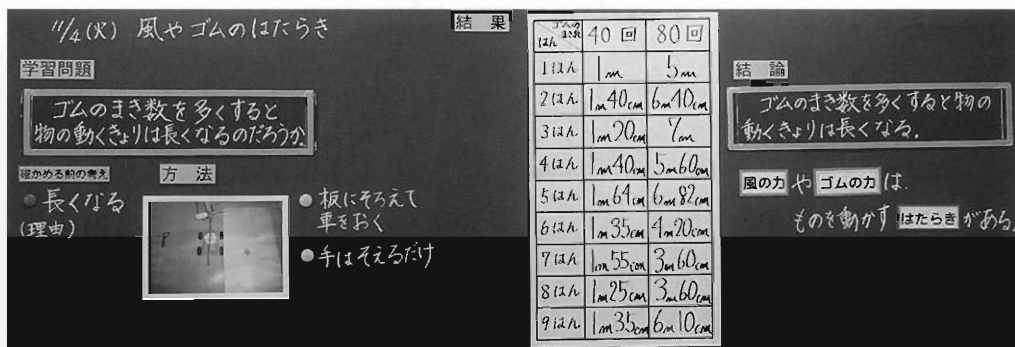 11/4(火) 風やゴムのはたらき
学習問題
ゴムのまき数を多くすると
物の動くきょりは長くなるのだろうか。
確かめる前の考え
長くなる
(理由)
方 法
板にそろえて
車をおく
手はそえるだけ
結 果
はん ゴムのまき数 40回 80回
1はん 1m 5m
2はん 1m40cm 6m40cm
3はん 1m20cm 7m
4はん 1m40cm 5m60cm
5はん 1m64cm 6m82cm
6はん 1m35cm 4m20cm
7はん 1m55cm 3m60cm
8はん 1m25cm 3m60cm
9はん 1m35cm 6m10cm
結 論
ゴムのまき数を多くすると物の
動くきょりは長くなる。
風の力 や ゴムの力 は、
ものを動かす はたらき がある。